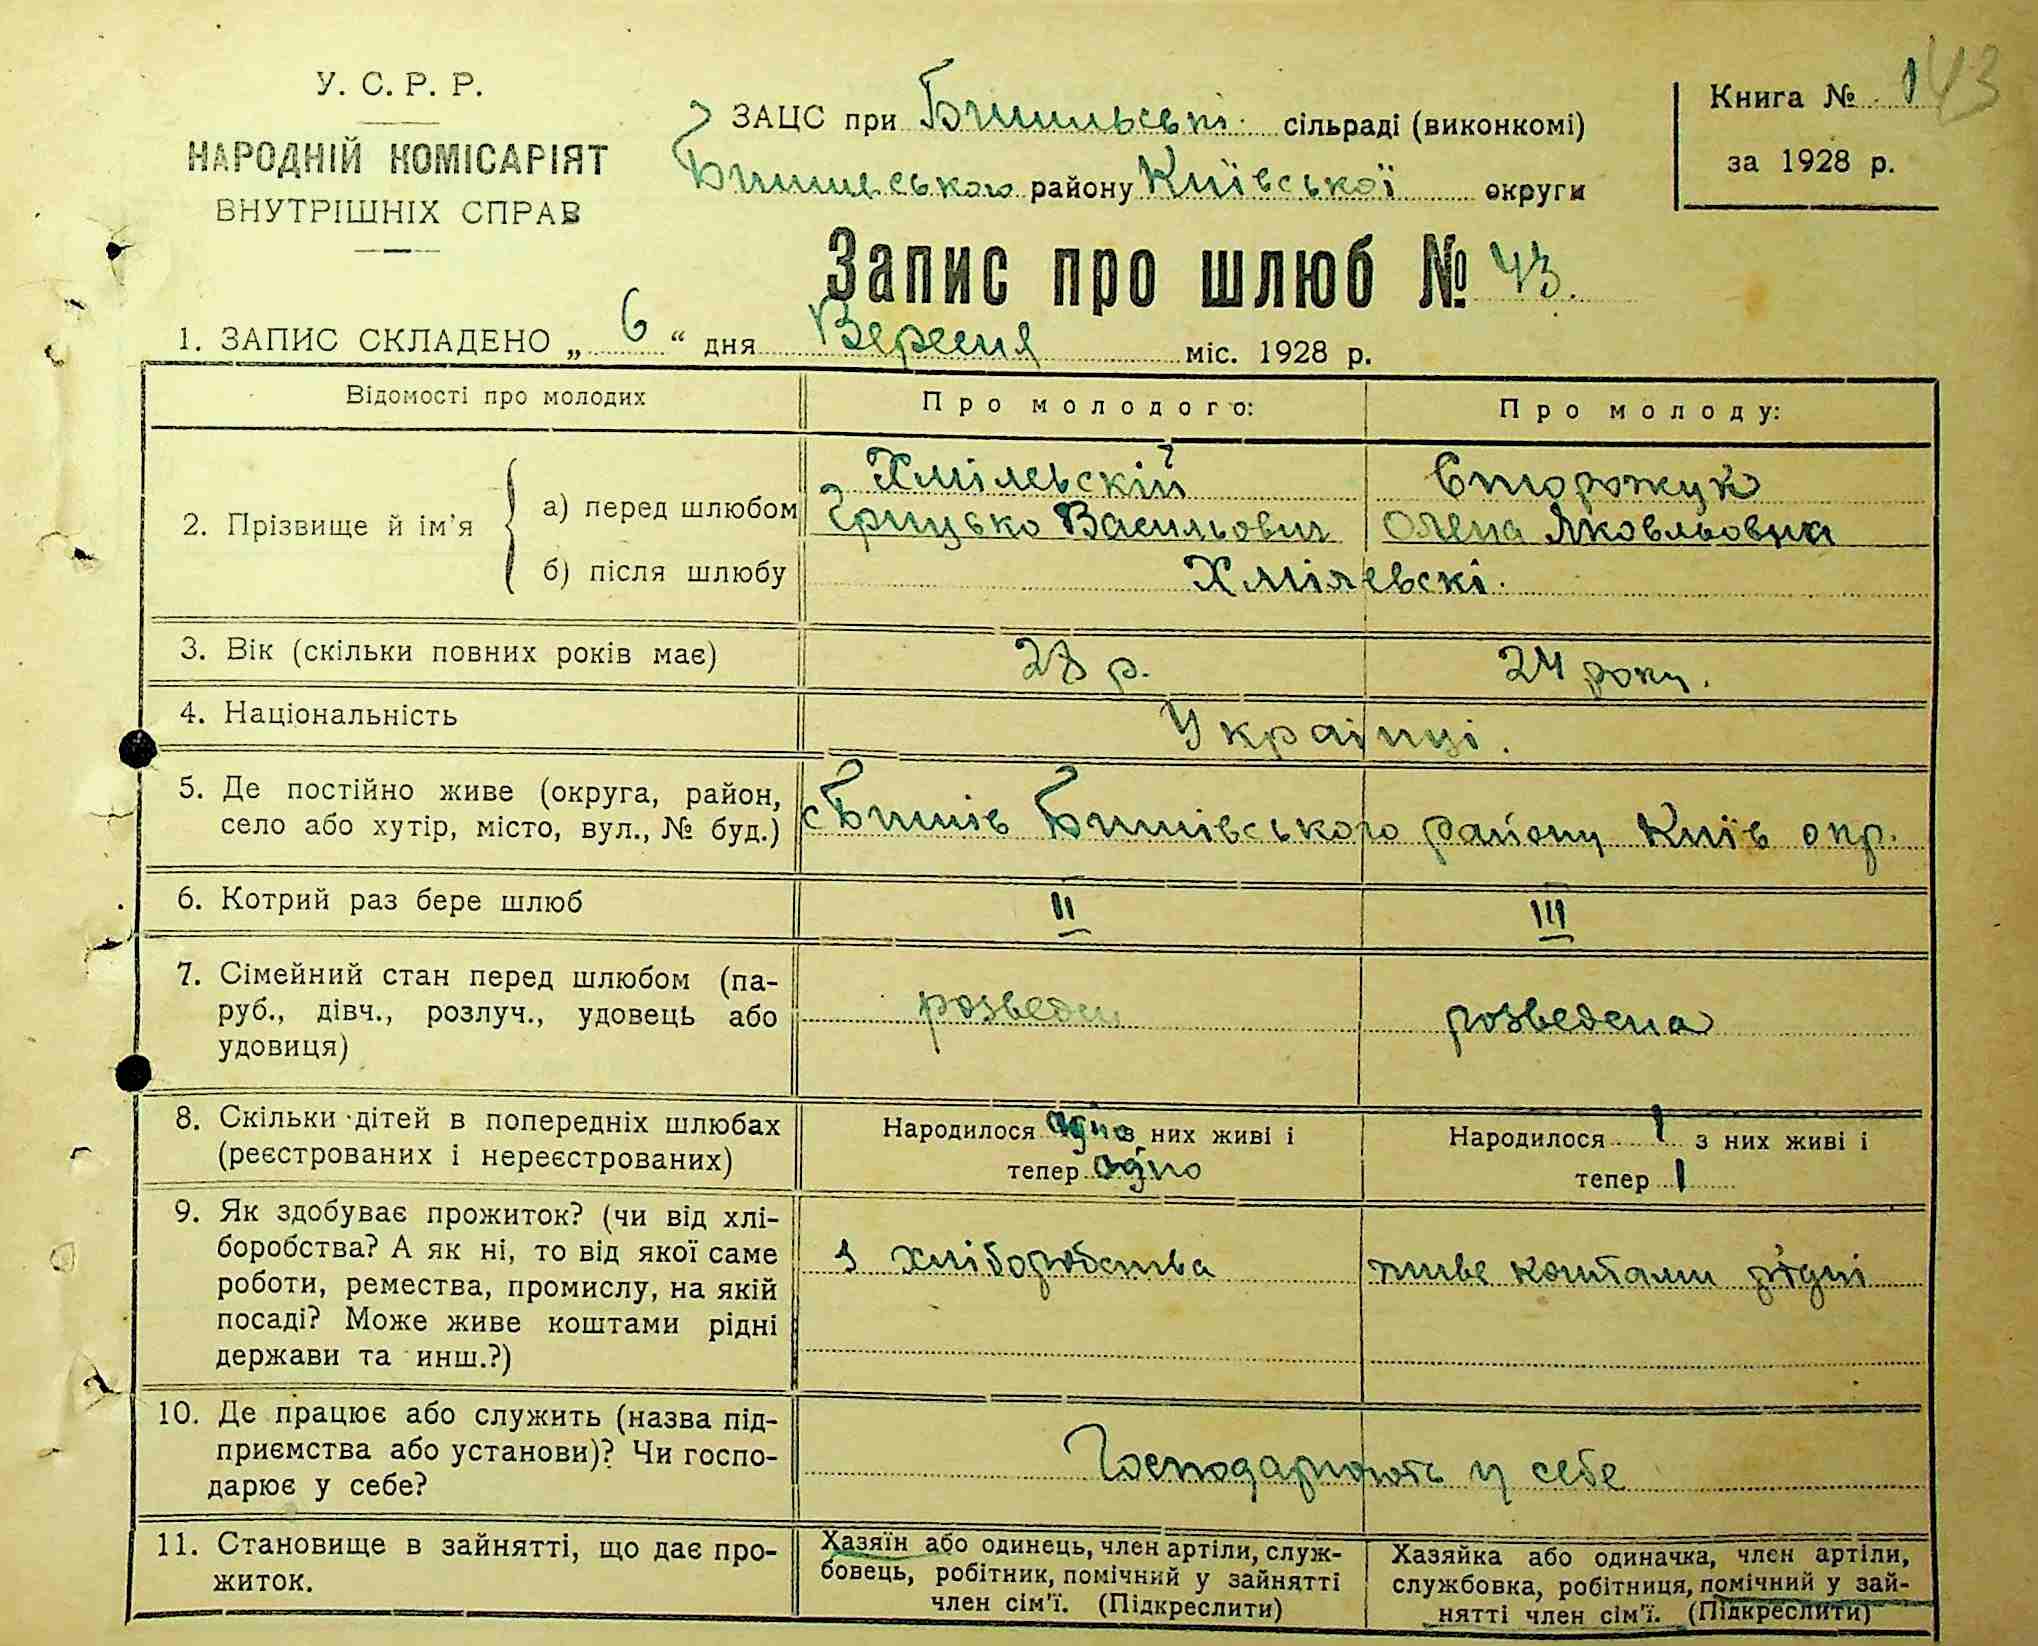 У. С. Р. Р.
НАРОДНІЙ КОМІСАРІЯТ
ВНУТРІШНІХ СПРАВ
ЗАЦС при сільраді (виконкомі)
району Київської округи
Книга № 1 43
за 1928 р.
Запис про шлюб № 43.
1. ЗАПИС СКЛАДЕНО „ 6 “ дня Вересня міс. 1928 р.
Відомості про молодих
Про молодого:
Про молоду:
2. Прізвище й ім'я
а) перед шлюбом
Хмілевскій
Грицько Васильович
Сторожук
Олена Яковльовна
б) після шлюбу
Хмілевскі.
3. Вік (скільки повних років має)
28 р.
24 роки.
4. Національність
Українці.
5. Де постійно живе (округа, район,
село або хутір, місто, вул., № буд.)
с Бишів Бишівського району Київ окр.
6. Котрий раз бере шлюб
II
III
7. Сімейний стан перед шлюбом (па-
руб., дівч., розлуч., удовець або
удовиця)
розведен
розведена
8. Скільки дітей в попередніх шлюбах
(реєстрованих і нереєстрованих)
Народилося одно з них живі і
тепер одно
Народилося 1 з них живі і
тепер 1
9. Як здобуває прожиток? (чи від хлі-
боробства? А як ні, то від якої саме
роботи, ремества, промислу, на якій
посаді? Може живе коштами рідні
держави та инш.?)
з хліборобства
живе коштами рідні
10. Де працює або служить (назва під-
приємства або установи)? Чи госпо-
дарює у себе?
Господарюють у себе
11. Становище в зайнятті, що дає про-
житок.
Хазяїн або одинець, член артіли, служ-
бовець, робітник, помічний у зайнятті
член сім'ї. (Підкреслити)
Хазяйка або одиначка, член артіли,
службовка, робітниця, помічний у зай-
нятті член сім'ї. (Підкреслити)